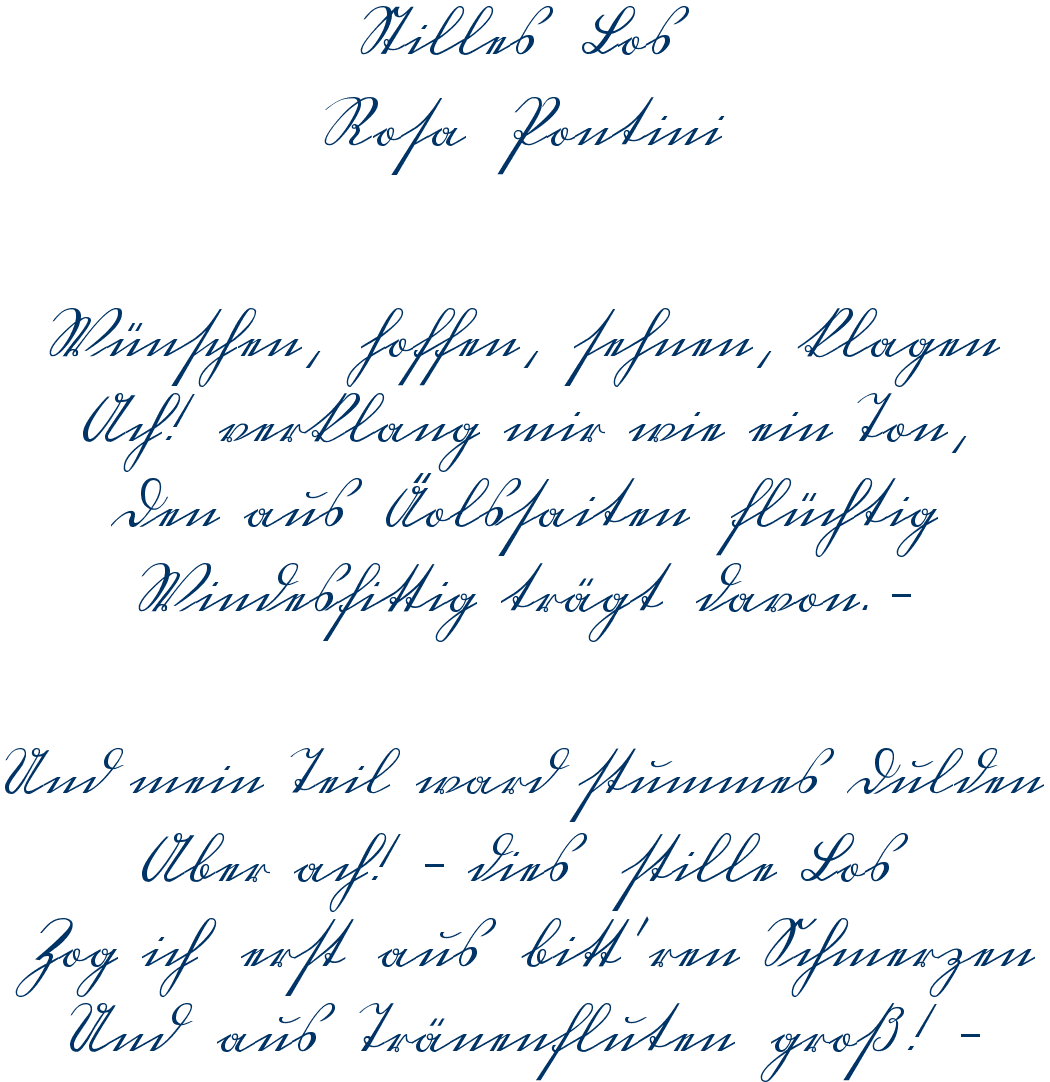 Stilles Los
Rosa Pontini
Wünschen, hoffen, sehnen, klagen
Ach! verklang mir wie ein Ton,
Den aus Äolssaiten flüchtig
Windesfittig trägt davon. –
Und mein Teil ward stummes Dulden
Aber ach! – dies stille Los
Zog ich erst aus bitt'ren Schmerzen
Und aus Tränenfluten groß! –